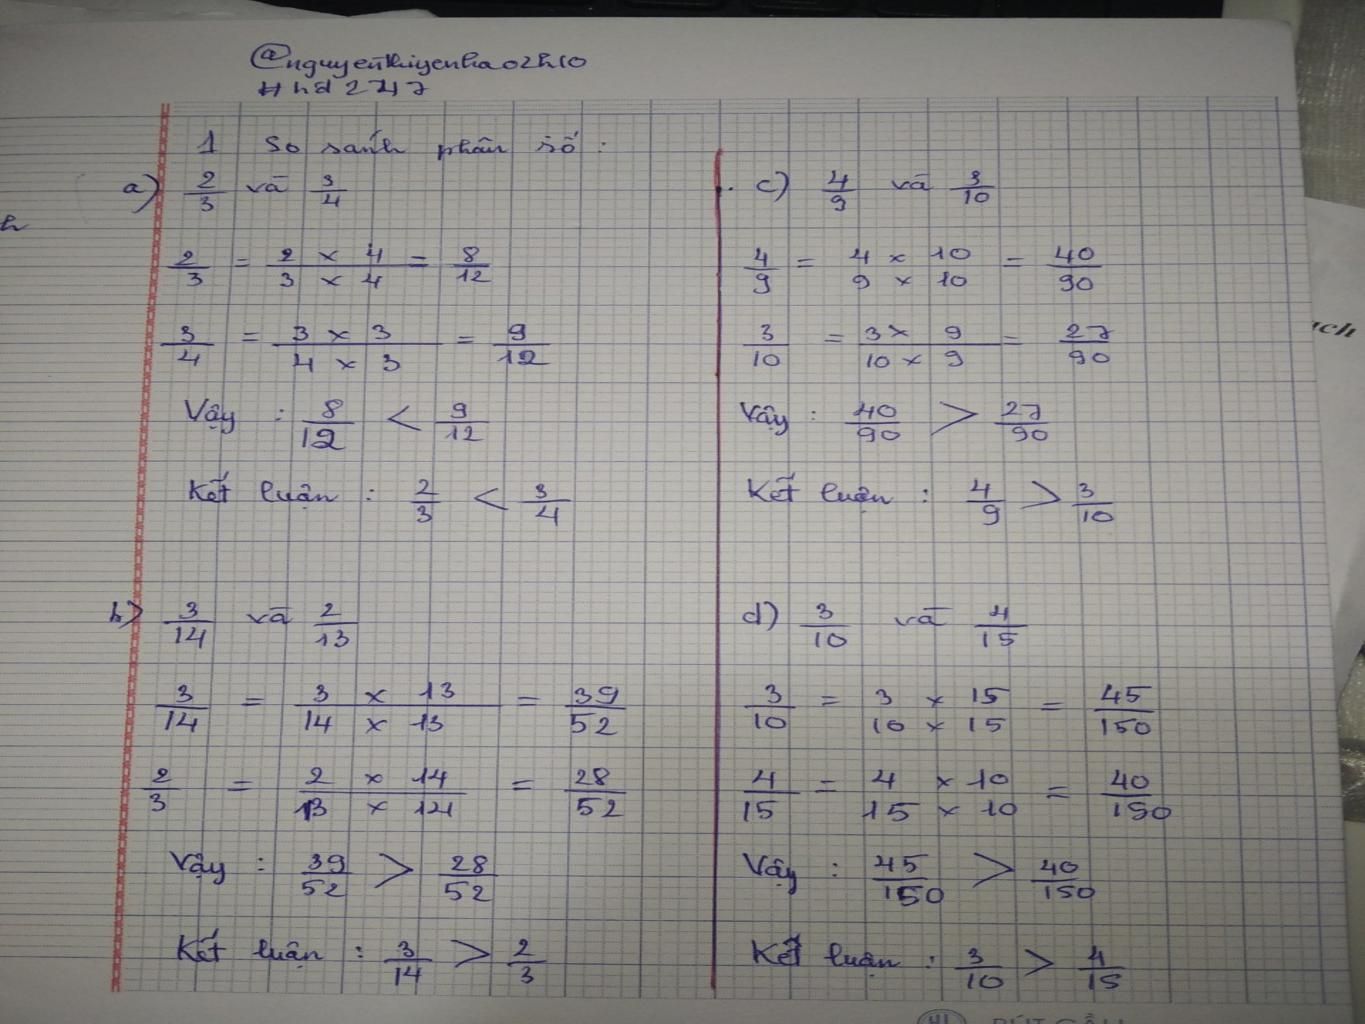 @nguyenthiyenha02h10
#hd2747
1 So sánh phân số :
a) 2/3 và 3/4
2/3 = 2 x 4 / 3 x 4 = 8/12
3/4 = 3 x 3 / 4 x 3 = 9/12
Vậy : 8/12 < 9/12
Kết luận : 2/3 < 3/4
b) 3/14 và 2/13
3/14 = 3 x 13 / 14 x 13 = 39/52
2/3 = 2 x 14 / 13 x 14 = 28/52
Vậy : 39/52 > 28/52
Kết luận : 3/14 > 2/3
c) 4/9 và 3/10
4/9 = 4 x 10 / 9 x 10 = 40/90
3/10 = 3 x 9 / 10 x 9 = 27/90
Vậy : 40/90 > 27/90
Kết luận : 4/9 > 3/10
d) 3/10 và 4/15
3/10 = 3 x 15 / 10 x 15 = 45/150
4/15 = 4 x 10 / 15 x 10 = 40/150
Vậy : 45/150 > 40/150
Kết luận : 3/10 > 4/15